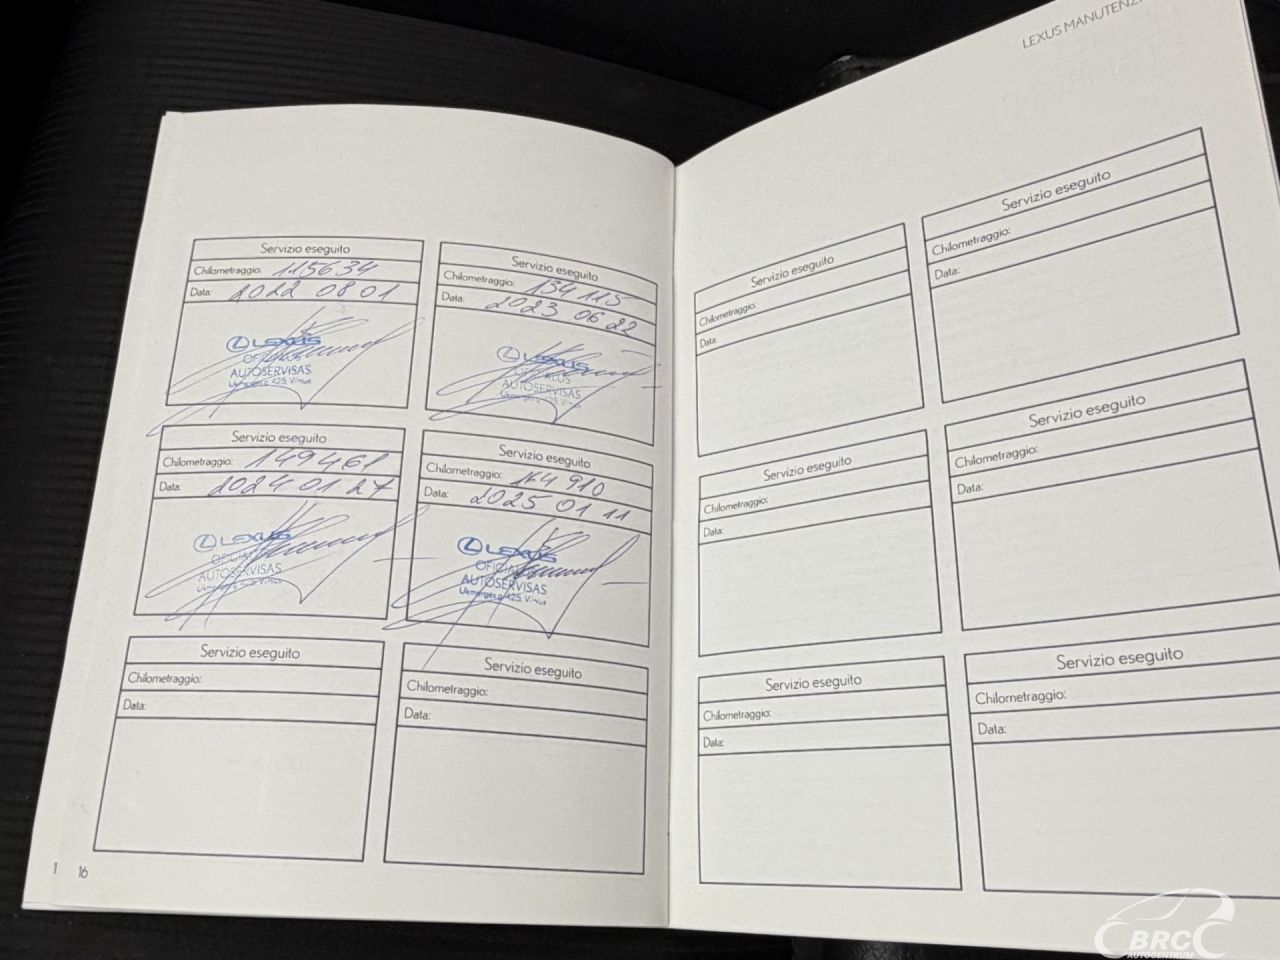 LEXUS MANUTENZI
Servizio eseguito
Chilometraggio: 115634
Data: 2022 08 01
LEXUS
OFICIALUS
AUTOSERVISAS
Ukmergės g. 425 Vilnius
Servizio eseguito
Chilometraggio: 134 115
Data: 2023 06 22
LEXUS
OFICIALUS
AUTOSERVISAS
Servizio eseguito
Chilometraggio: 149461
Data: 2024 01 27
LEXUS
OFICIALUS
AUTOSERVISAS
Servizio eseguito
Chilometraggio: 164 910
Data: 2025 01 11
LEXUS
OFICIALUS
AUTOSERVISAS
Ukmergės g. 425 Vilnius
Servizio eseguito
Chilometraggio:
Data:
Servizio eseguito
Chilometraggio:
Data:
1 16
Servizio eseguito
Chilometraggio:
Data:
Servizio eseguito
Chilometraggio:
Data:
Servizio eseguito
Chilometraggio:
Data:
Servizio eseguito
Chilometraggio:
Data:
Servizio eseguito
Chilometraggio:
Data:
Servizio eseguito
Chilometraggio:
Data:
BRC
AUTOCENTRUM